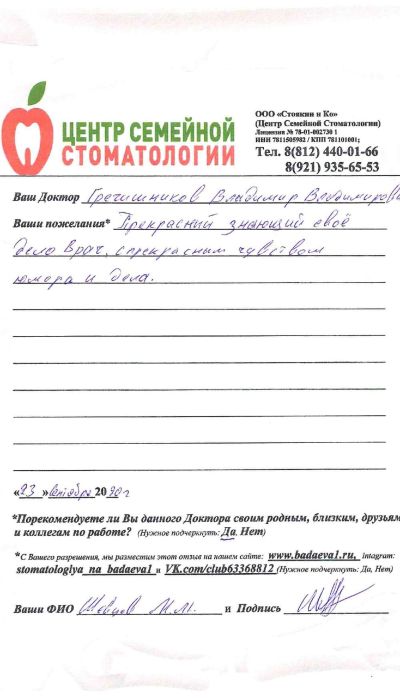 ЦЕНТР СЕМЕЙНОЙ
СТОМАТОЛОГИИ
ООО «Стоякин и Ко»
(Центр Семейной Стоматологии)
Лицензия № 78-01-002730 1
ИНН 7811505982 / КПП 781101001;
Тел. 8(812) 440-01-66
8(921) 935-65-53
Ваш Доктор Гречишников Владимир Владимирович
Ваши пожелания* Прекрасний знающий своё
дело Врач, с прекрасным чувством
юмора и дела.
«23 »сентября 2020г
*Порекомендуете ли Вы данного Доктора своим родным, близким, друзьям
и коллегам по работе? (Нужное подчеркнуть: Да, Нет)
*С Вашего разрешения, мы разместим этот отзыв на нашем сайте: www.badaeva1.ru, intagram:
stomatologiya_na_badaeva1 и VK.com/club63368812 (Нужное подчеркнуть: Да, Нет)
Ваши ФИО Швецов М.М. и Подпись